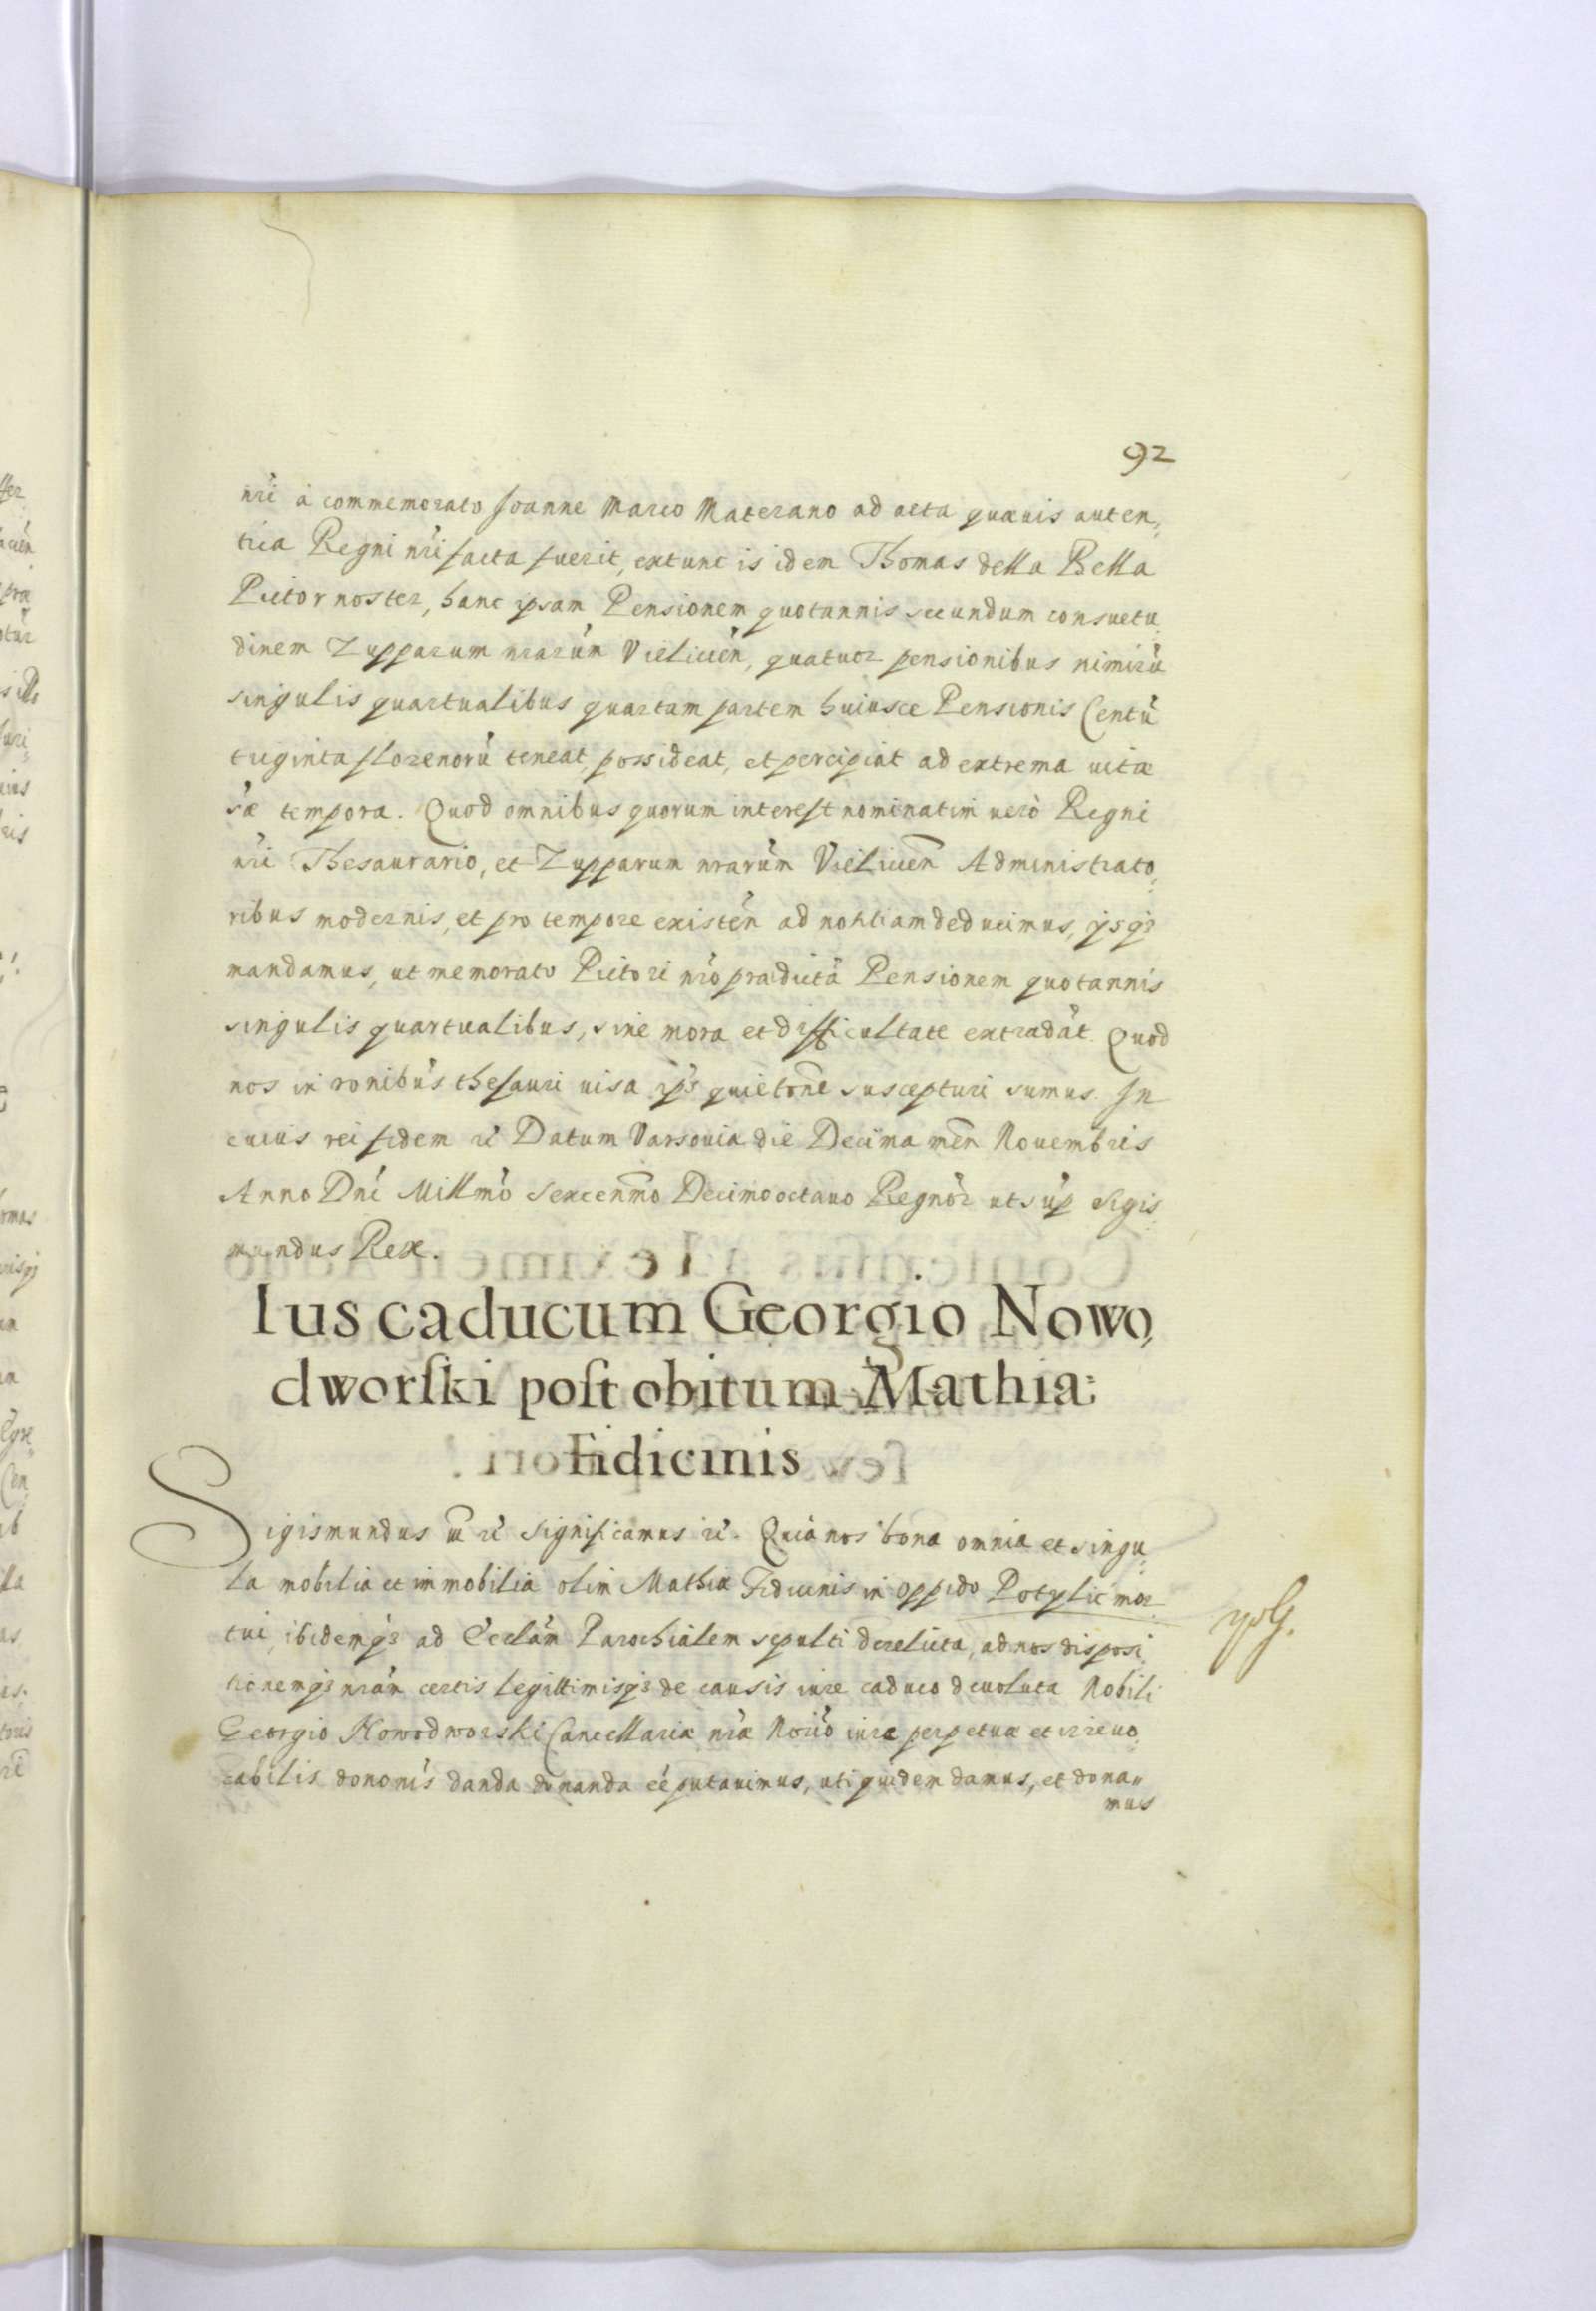 92
nri à commemorato Joanne Marco Materano ad acta quævis auten,
tica Regni nri facta fuerit, extunc is idem Thomas della Bella
Pictor noster, hanc ipsam Pensionem quotannis secundum consuetu,
dinem Zupparum nrarum Vielicen, quatuor pensionibus nimirũ
singulis quartualibus quartam partem huiusce Pensionis Centũ
triginta florenorũ teneat, possideat, et percipiat ad extrema uitæ
sæ tempora. Quod omnibus quorum interest nominatim uerò Regni
nri Thesaurario, et Zupparum nrarum Vielicen Administrato,
ribus modernis, et pro tempore existen ad notitiam deducimus, ijsq3
mandamus, ut memorato Pictori nro prædictã Pensionem quotannis
singulis quartualibus, sine mora et difficultate extradãt. Quod
nos in ronibus thesauri uisa ips quietone suscepturi sumus. In
cuius rei fidem rc Datum Varsouiæ die Decima men Nouembris
Anno Dni Millmo sexcenmo Decimo octauo Regnor ut sup Sigis,
mundus Rex.
Ius caducum Georgio Nowo,
dworſki poſt obitum Mathiæ
Fidicinis
Sigismundus rc Significamus rc. Quia nos bona omnia et singu,
la mobilia et immobilia olim Mathiæ Fidicinis in oppido Potylic mor,
tui, ibidemq3 ad Eccлam Parochialem sepulti derelicta, ad nos disposi,
tionemq3 nram certis legittimisq3 de causis iure caduco deuoluta Nobili
Georgio Nowodworski Cancellariæ nræ Norio iure perpetuæ et irreuo,
cabilis dononis danda donanda eé putauimus, uti quidem damus, et dona„
mus